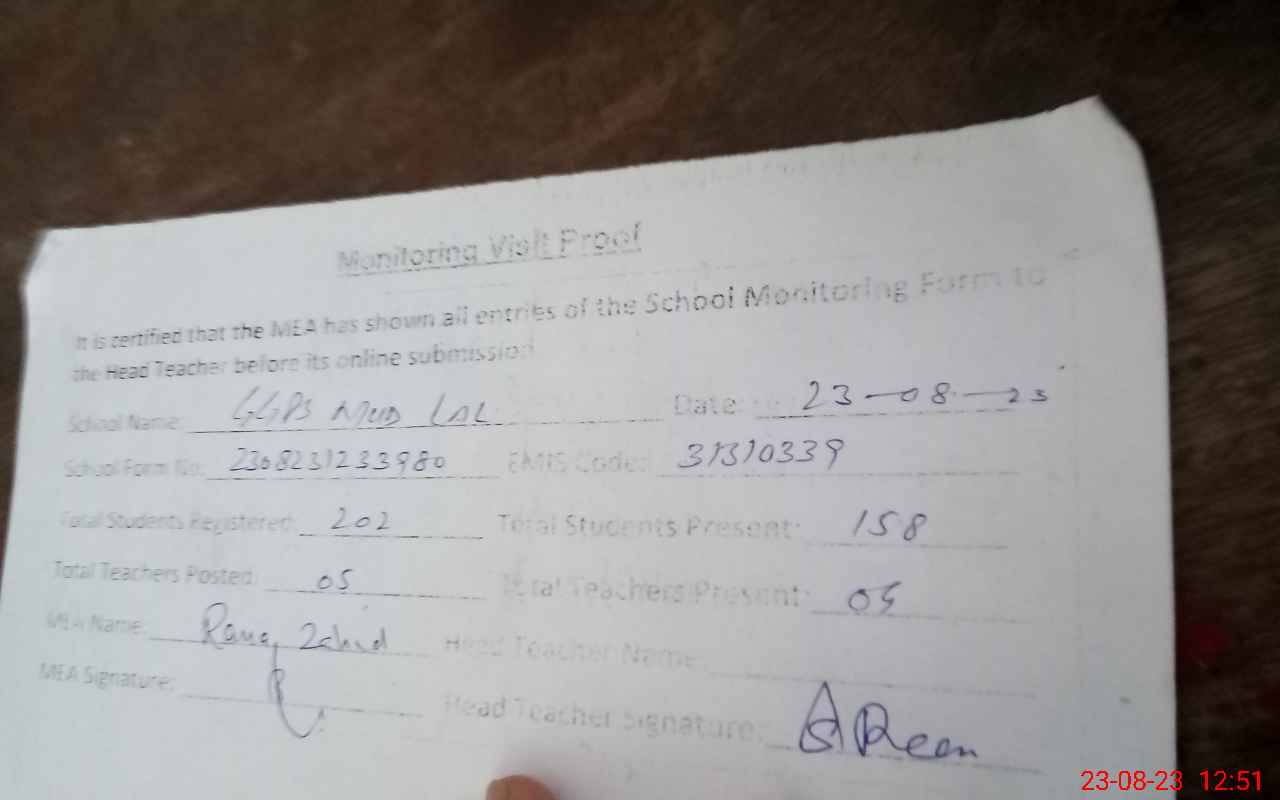 Monitoring Visit Proof
It is certified that the MEA has shown all entries of the School Monitoring Form to
the Head Teacher before its online submission
School Name: GGPS Mud LAL Date: 23-08-23
School Form No: 2308231233980 EMIS Code: 31310339
Total Students Registered: 202 Total Students Present: 158
Total Teachers Posted: 05 Total Teachers Present: 05
MEA Name: Rana Zahid Head Teacher Name:
MEA Signature: Head Teacher Signature:
23-08-23 12:51